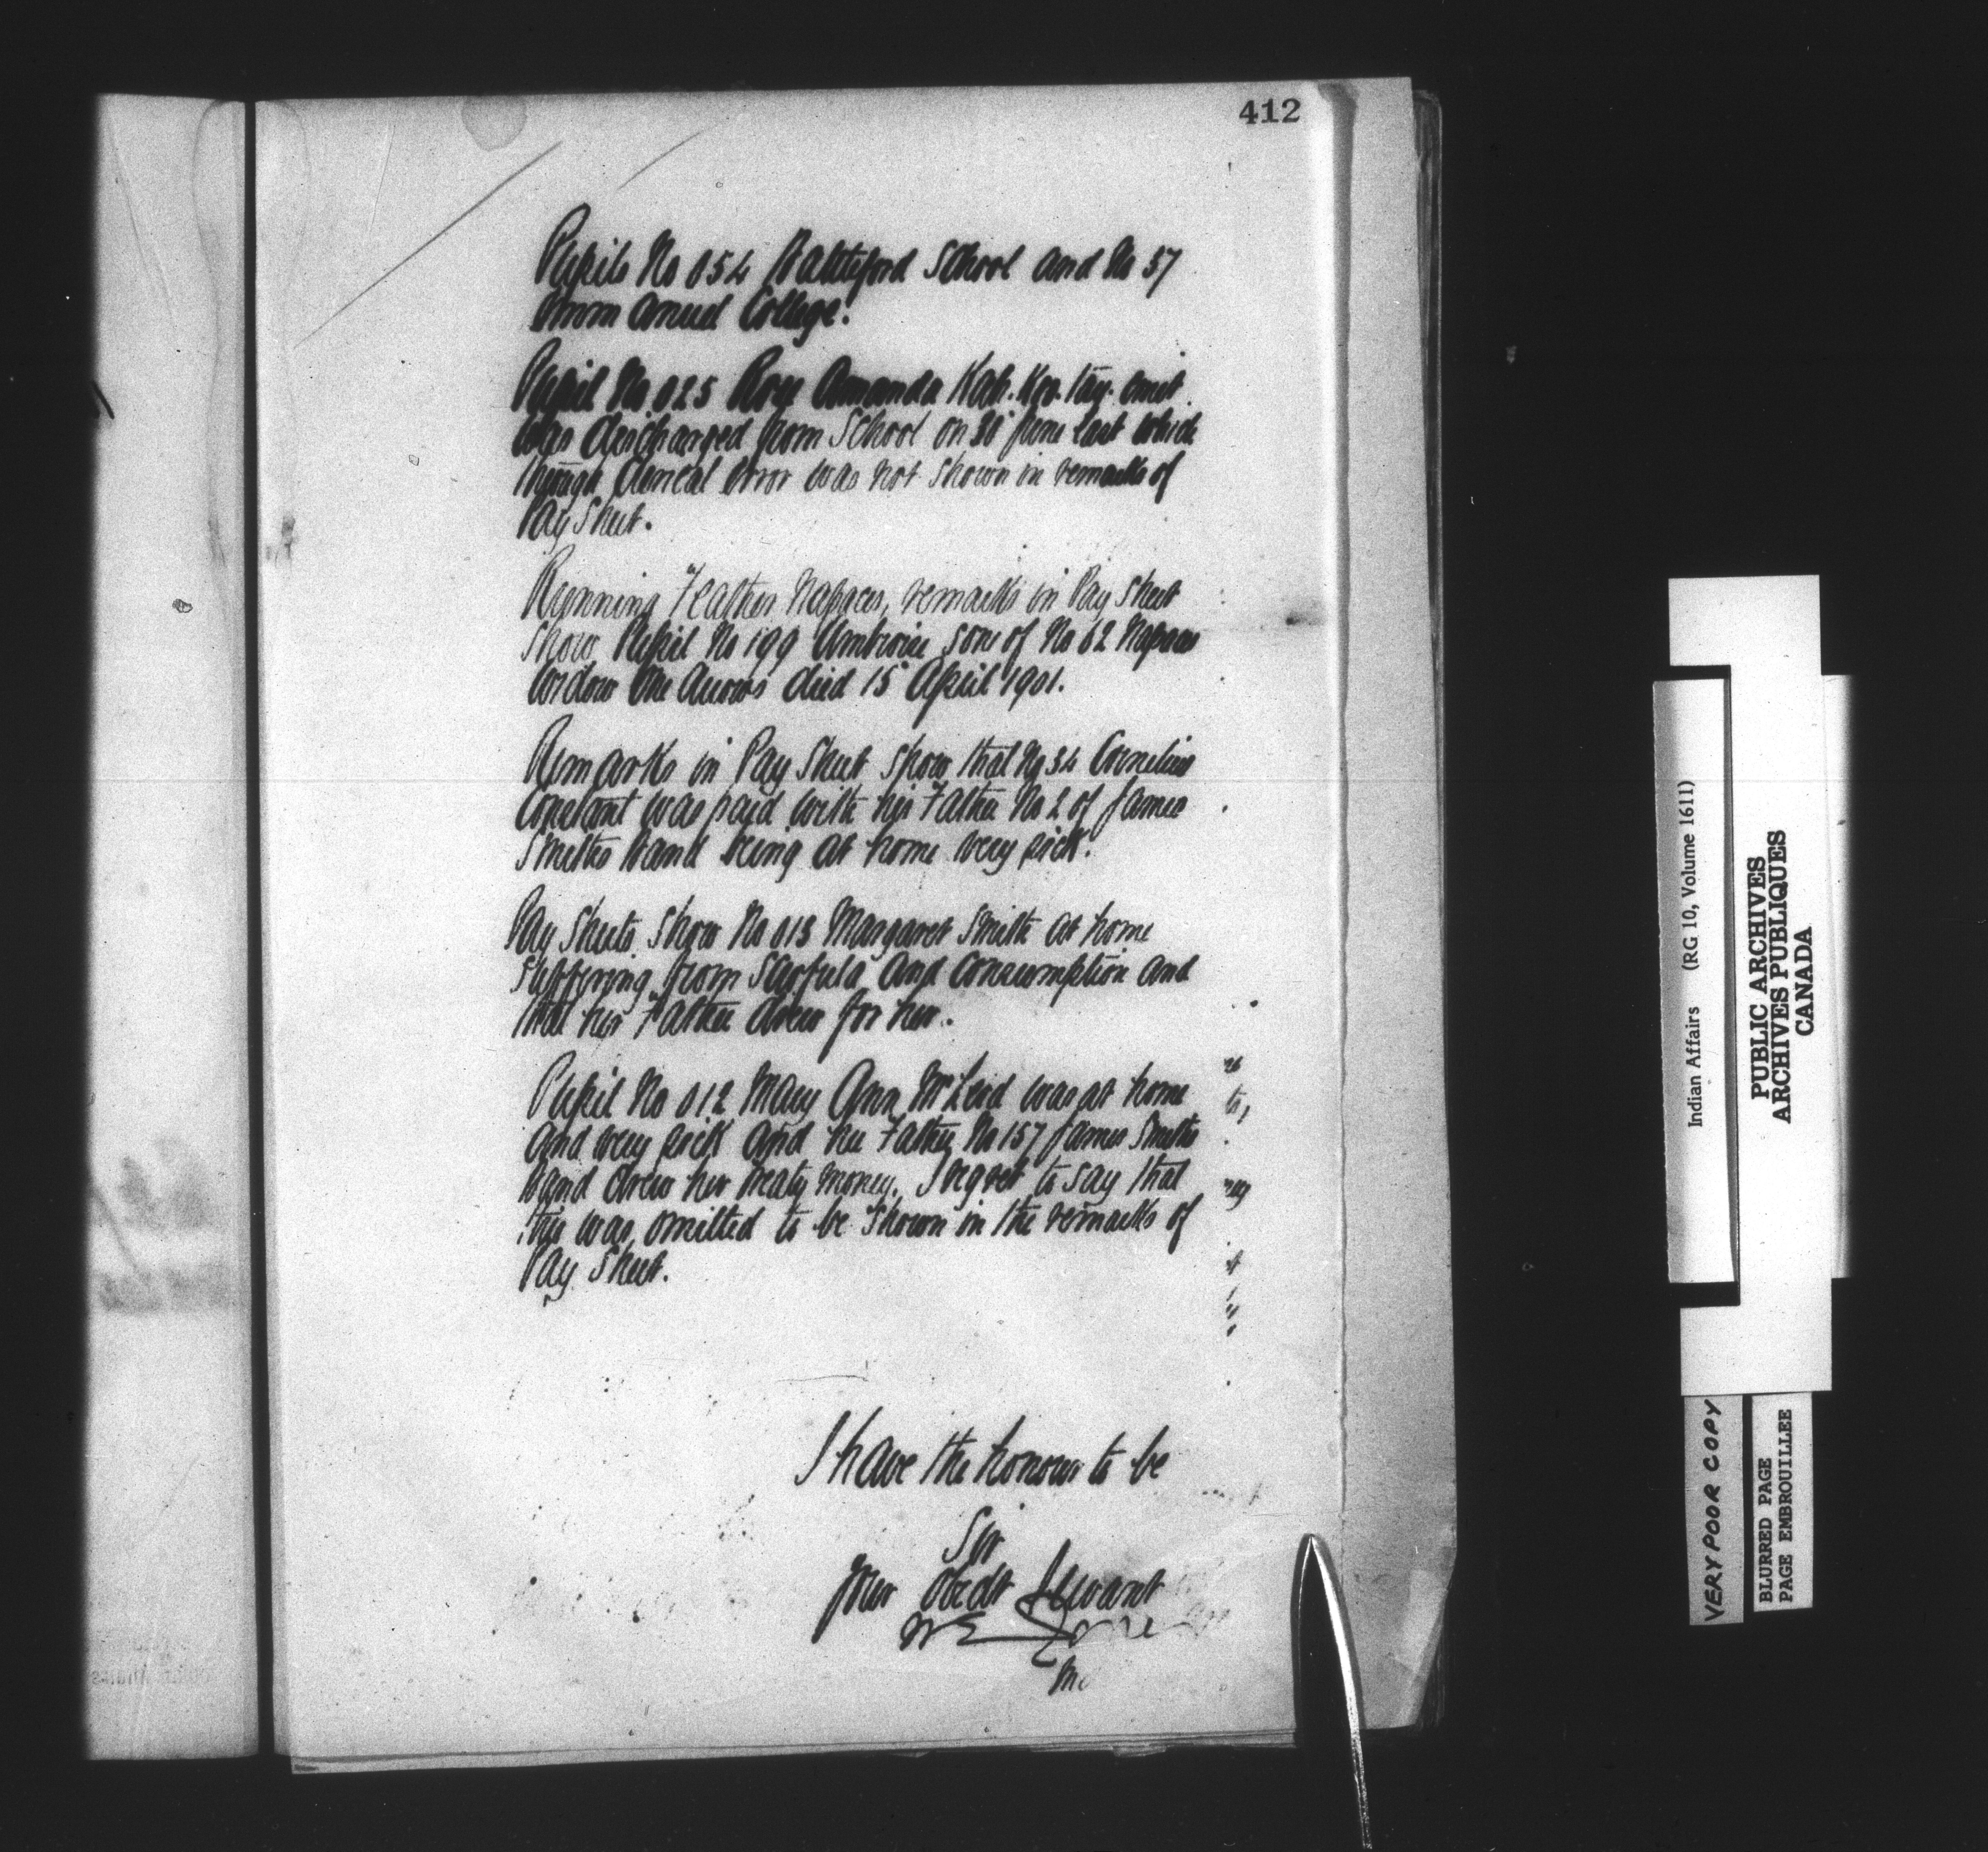 412
Pupils No 054 Battleford School and No 37
Emmanuel College.
Pupil No 025 Rose Amanda Kah. Kee. tay. 
was discharged from School on 30 June last which
through Clerical Error was not shown in remarks of
Pay Sheet.
Running Feather Napaces, remarks in Pay Sheet
show Pupil No 199 Ambroise son of No 62 Napaces
widow One Arrows died 15 April 1901.
Remarks in Pay Sheet show that No 34 Cornelius
Constant was paid with his Father No 2 of James
Smiths Band being at home very sick.
Pay Sheets show No 013 Margaret Smith at home
suffering from Scrofula and Consumption and
that her Father drew for her.
Pupil No 012 Mary Ann McLeod was at home
and very sick and her Father No 157 James Smiths
Band drew her treaty money. I regret to say that
this was omitted to be shown in the remarks of
Pay Sheet.
I have the honour to be
Sir
Your obedt Servant
W E Jones
Indian Affairs (RG 10, Volume 1611)
PUBLIC ARCHIVES
ARCHIVES PUBLIQUES
CANADA
VERY POOR COPY
BLURRED PAGE
PAGE EMBROUILLEE